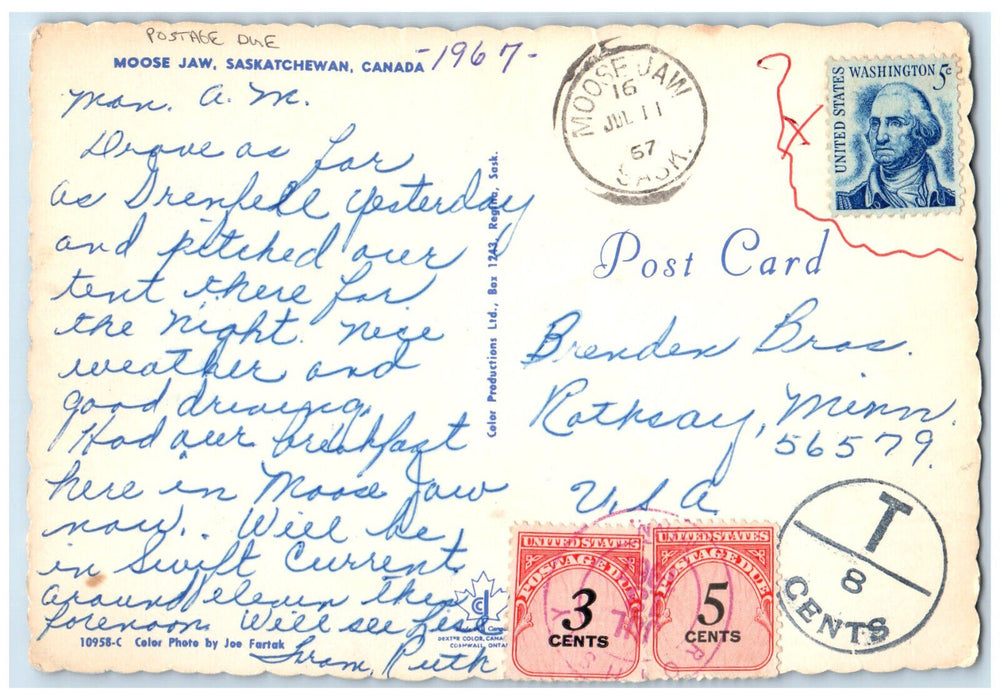 POSTAGE DUE
MOOSE JAW, SASKATCHEWAN, CANADA -1967-
Mon. A. M.
Drove as far
as Grenfell yesterday
and pitched our
tent there for
the night. Nice
weather and
good driving.
Had our breakfast
here in Moose Jaw
now. Will be
in Swift Current
around eleven this
forenoon. Will see
From, Ruth
10958-C Color Photo by Joe Fartak
DEXTER COLOR, CANA
CORNWALL, ONTA
Color Productions Ltd., Box 1243, Regina, Sask.
MOOSE JAW
16
JUL 11
67
SASK.
UNITED STATES WASHINGTON 5c
Post Card
Brenden Bros.
Rothsay, Minn.
56579.
U.S.A
UNITED STATES
POSTAGE DUE
3
CENTS
UNITED STATES
POSTAGE DUE
5
CENTS
T
8
CENTS